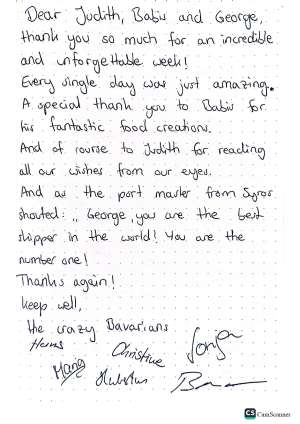 Dear Judith, Babis and George,
thank you so much for an incredible
and unforgettable week!
Every single day was just amazing.
A special thank you to Babis for
his fantastic food creations.
And of course to Judith for reading
all our wishes from our eyes.
And as the port master from Syros
shouted: „George, you are the best
skipper in the world! You are the
number one!
Thanks again!
keep well,
the crazy Bavarians
Hannes Christine Sonja
CS CamScanner